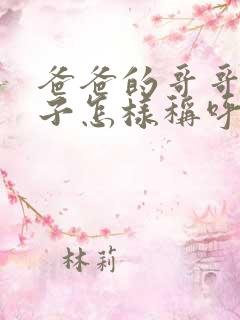 爸爸的哥哥
子怎样称呼
林莉